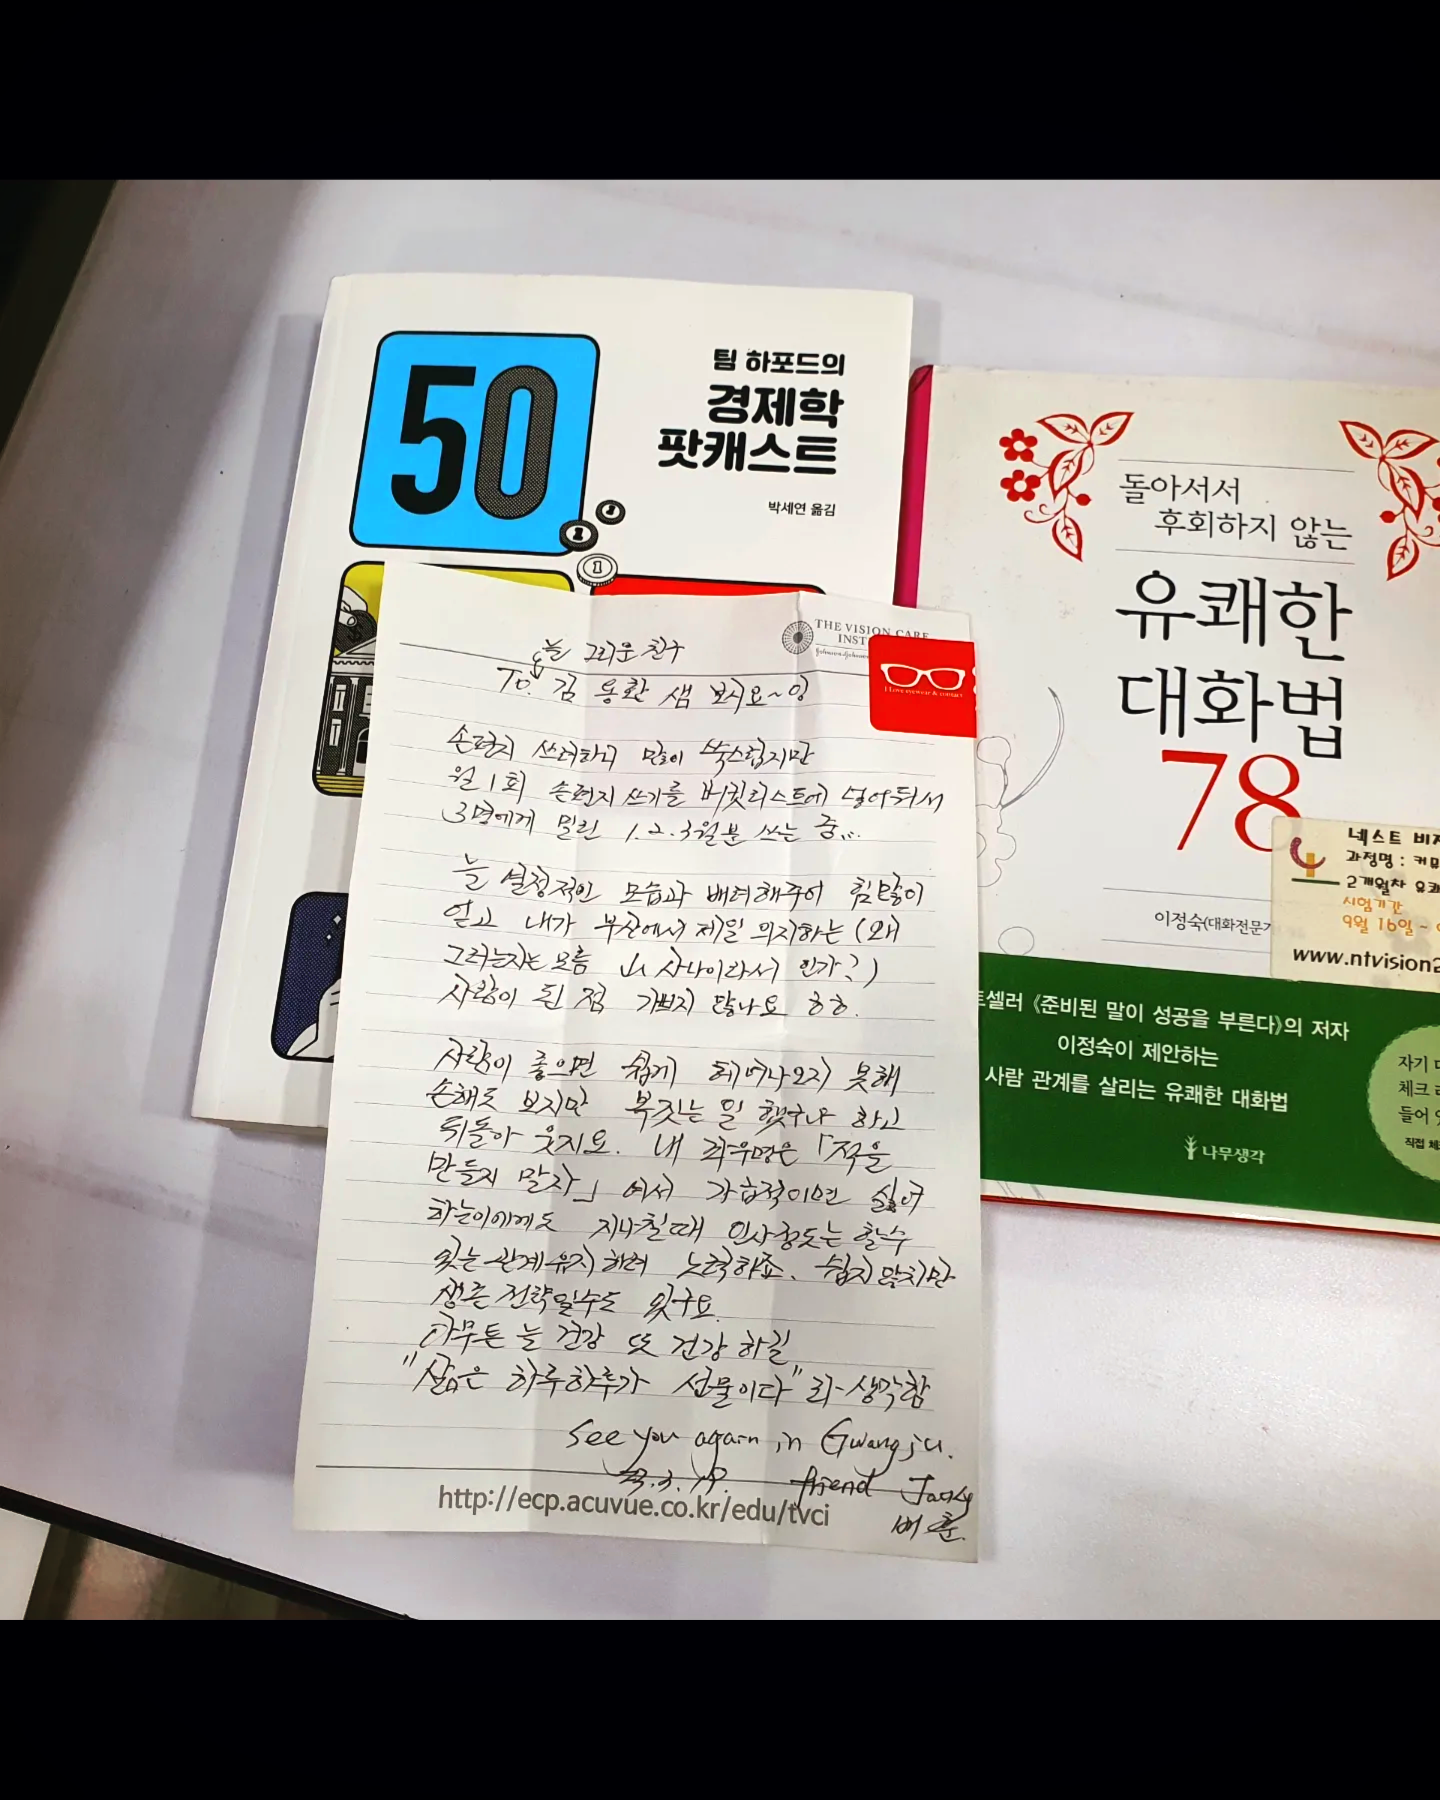 50
팀 하포드의
경제학
팟캐스트
박세연 옮김
돌아서서
후회하지 않는
유쾌한
대화법
78
이정숙(대화전문가
네스트 비
과정명 : 커뮤
2개월차 유쾌
시험기간
9월 16일 ~
www.ntvision2
트셀러 《준비된 말이 성공을 부른다》의 저자
이정숙이 제안하는
사람 관계를 살리는 유쾌한 대화법
나무생각
자기 
체크 
들어 
직접 
THE VISION CARE
INST
I Love eyewear & contact
늘 그리운 친구
To. 김 용환 샘 보시요~잉
손편지 쓰려하니 많이 쑥스럽지만
월 1회 손편지 쓰기를 버킷리스트에 넣어둬서
3명에게 밀린 1.2.3월분 쓰는 중...
늘 열정적인 모습과 배려해주어 힘 많이
얻고 내가 부산에서 제일 의지하는 (왜
그러는지는 모름 사나이라서 인가?)
사람이 된 점 기쁘지 않나요 ㅎㅎ.
사람이 좋으면 쉽게 헤어나오지 못해
손해도 보지만 복짓는 일 했구나 하고
뒤돌아 웃지요. 내 좌우명은 「적을
만들지 말자」 여서 가급적이면 싫어
하는이에게도 지나칠때 인사정도는 할수
있는 관계유지하려 노력하죠. 쉽지않지만
생존전략일수도 있구요.
아무튼 늘 건강 또 건강 하길
"삶은 하루하루가 선물이다" 라-생각함
See you again in Gwangju.
23.3.19. friend Jacky
배 훈.
http://ecp.acuvue.co.kr/edu/tvci